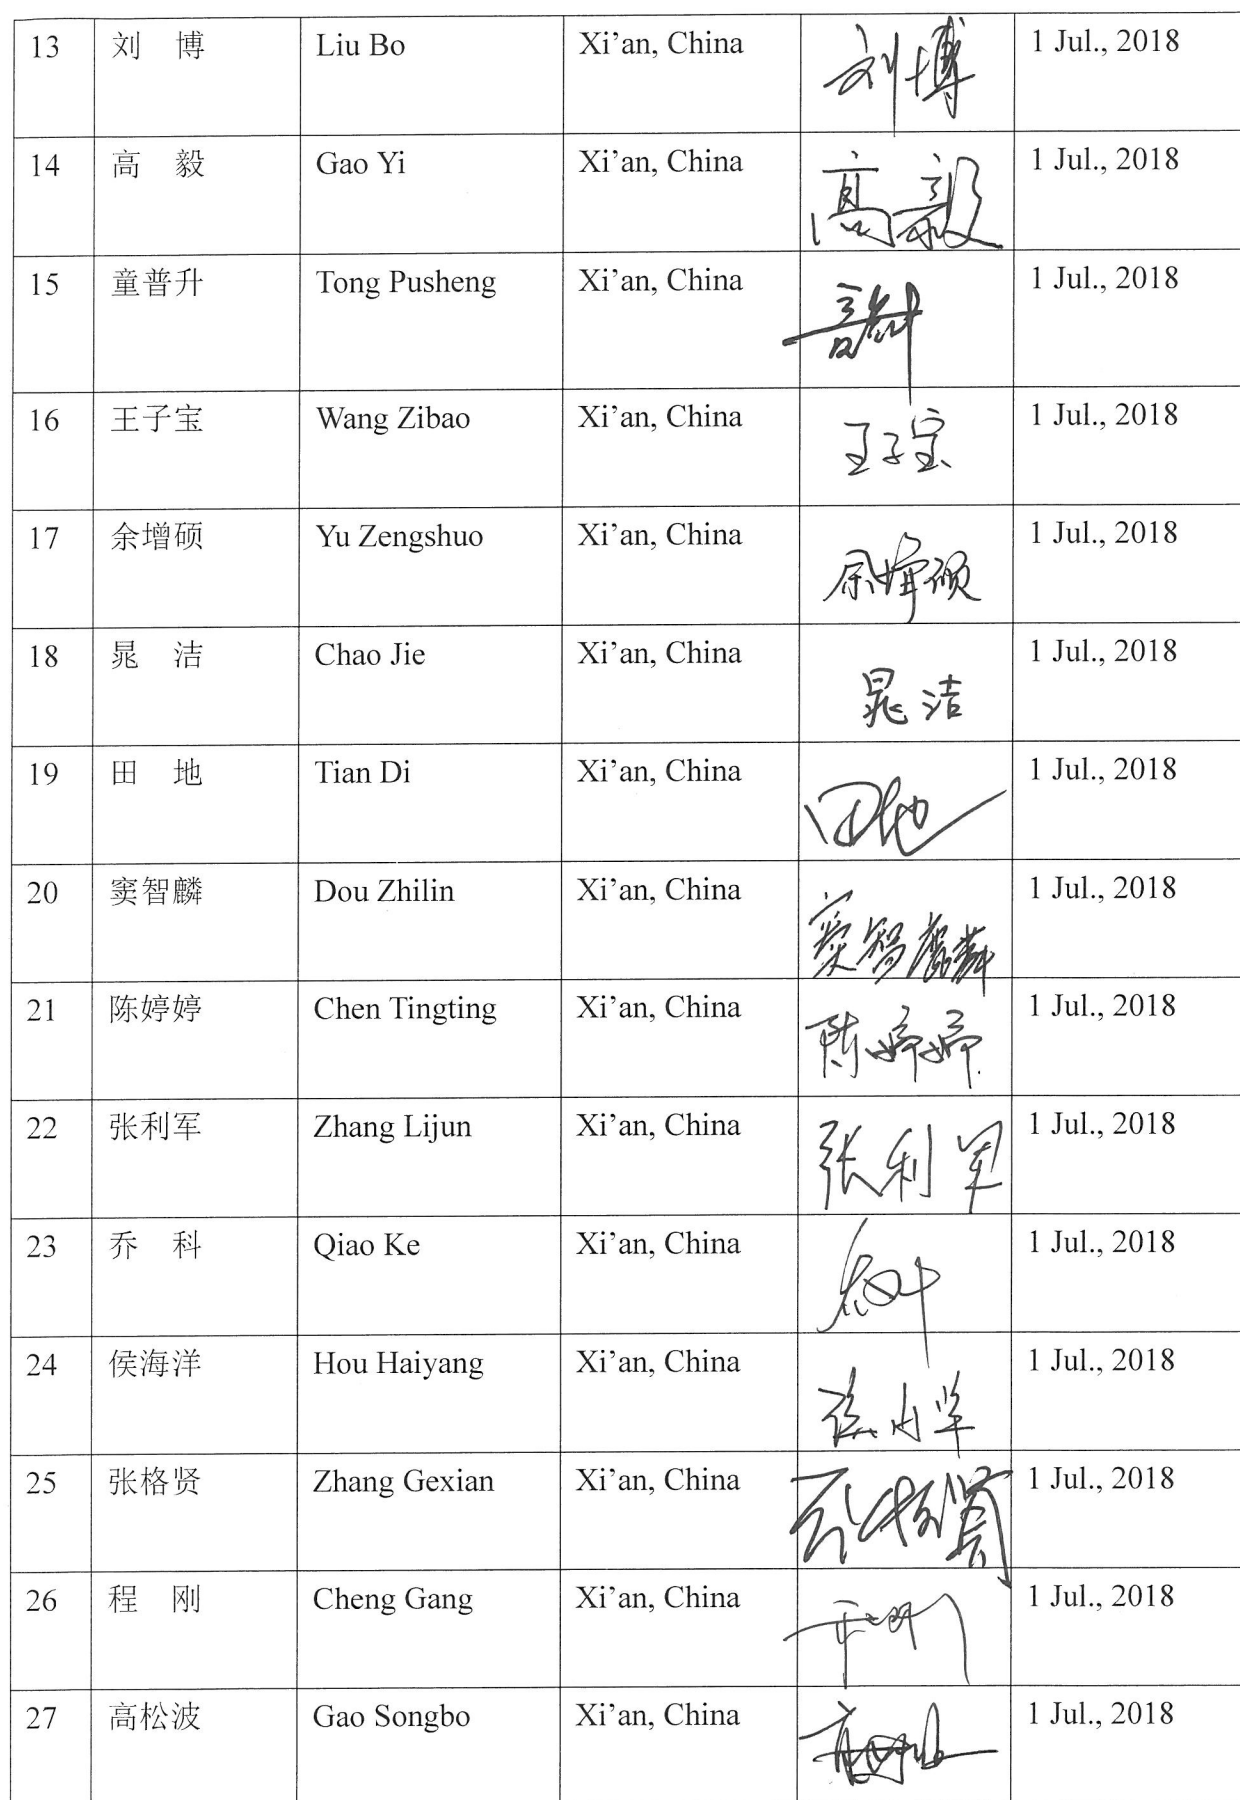 13 刘 博 Liu Bo Xi’an, China 刘博 1 Jul., 2018
14 高 毅 Gao Yi Xi’an, China 高毅 1 Jul., 2018
15 童普升 Tong Pusheng Xi’an, China 1 Jul., 2018
16 王子宝 Wang Zibao Xi’an, China 王子宝 1 Jul., 2018
17 余增硕 Yu Zengshuo Xi’an, China 余增硕 1 Jul., 2018
18 晁 洁 Chao Jie Xi’an, China 晁洁 1 Jul., 2018
19 田 地 Tian Di Xi’an, China 田地 1 Jul., 2018
20 窦智麟 Dou Zhilin Xi’an, China 窦智麟 1 Jul., 2018
21 陈婷婷 Chen Tingting Xi’an, China 陈婷婷 1 Jul., 2018
22 张利军 Zhang Lijun Xi’an, China 张利军 1 Jul., 2018
23 乔 科 Qiao Ke Xi’an, China 1 Jul., 2018
24 侯海洋 Hou Haiyang Xi’an, China 1 Jul., 2018
25 张格贤 Zhang Gexian Xi’an, China 张格贤 1 Jul., 2018
26 程 刚 Cheng Gang Xi’an, China 1 Jul., 2018
27 高松波 Gao Songbo Xi’an, China 1 Jul., 2018